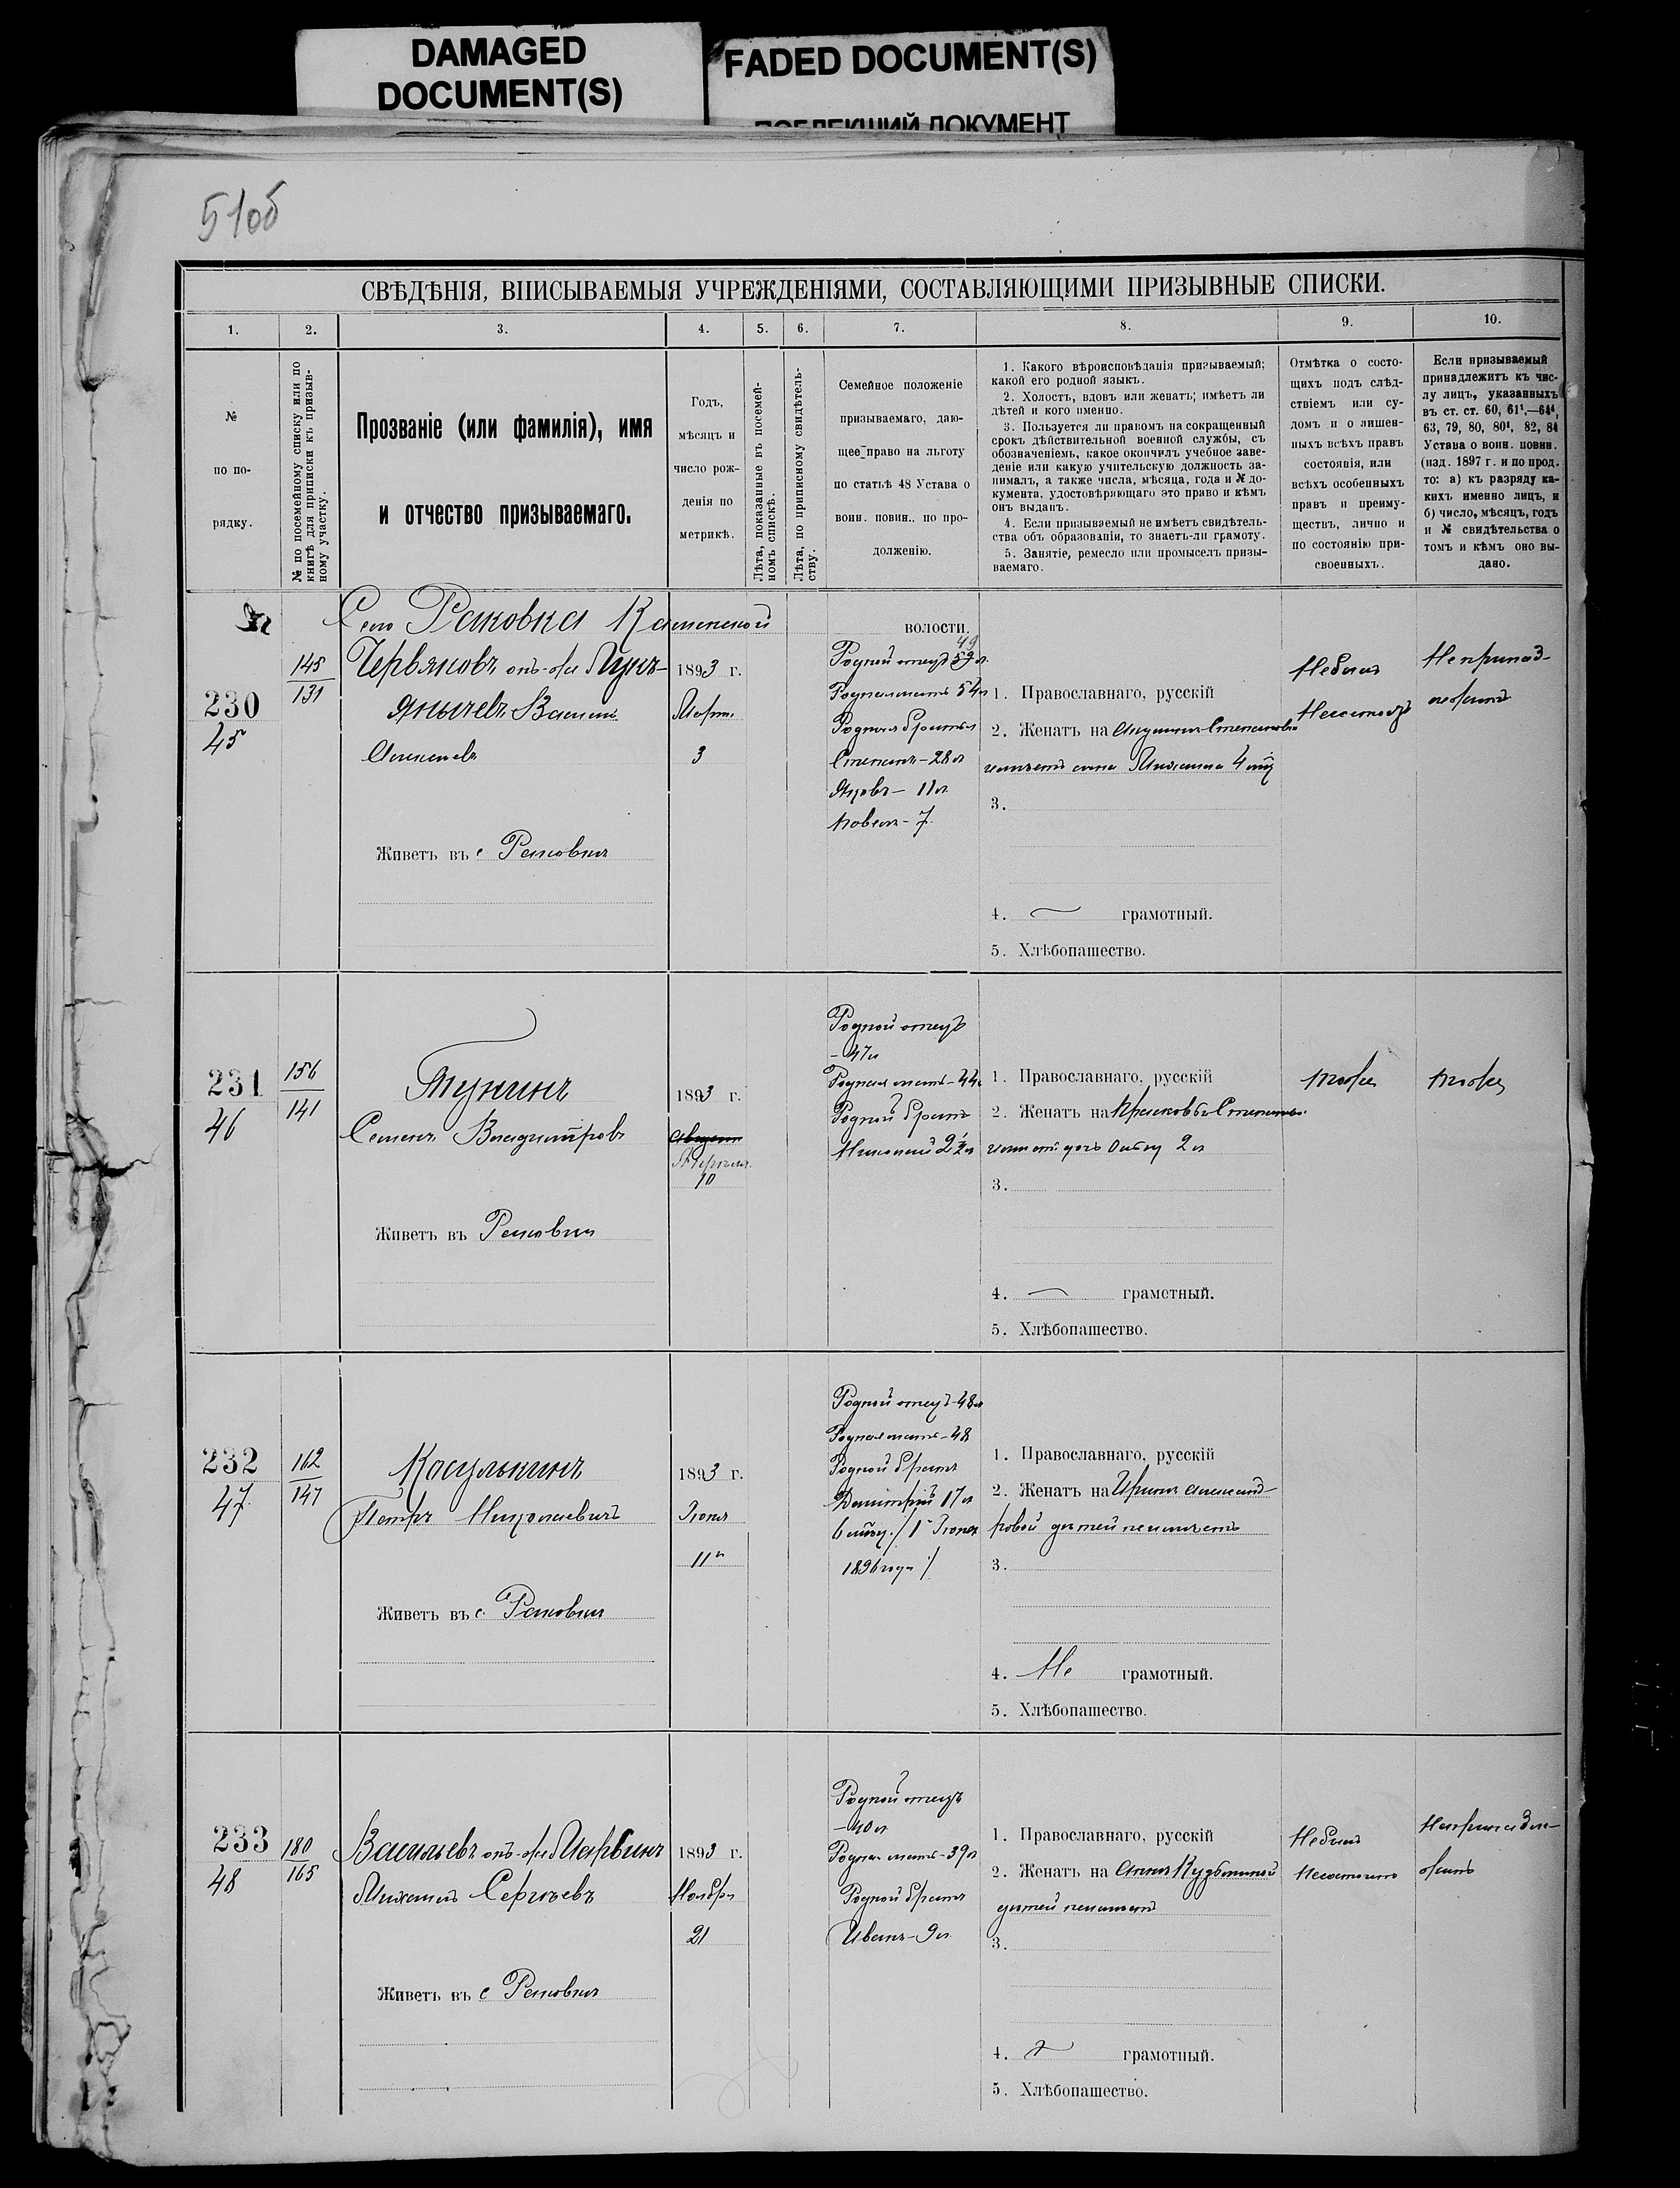 DAMAGED
DOCUMENT(S)
FADED DOCUMENT(S)
ПОБЛЕКШИЙ ДОКУМЕНТ
51об
СВѢДѢНІЯ, ВПИСЫВАЕМЫЯ УЧРЕЖДЕНІЯМИ, СОСТАВЛЯЮЩИМИ ПРИЗЫВНЫЕ СПИСКИ.
1. 2. 3. 4. 5. 6. 7. 8. 9. 10.
№
по по-
рядку.
№ по посемейному списку или по
книгѣ для приписки къ призыв-
ному участку.
Прозваніе (или фамилія), имя
и отчество призываемаго.
Годъ,
мѣсяцъ и
число рож-
денія по
метрикѣ.
Лѣта, показанные въ посемей-
номъ спискѣ.
Лѣта, по приписному свидѣтель-
ству.
Семейное положеніе
призываемаго, даю-
щее право на льготу
по статьѣ 48 Устава о
воин. повин., по про-
долженію.
1. Какого вѣроисповѣданія призываемый;
какой его родной языкъ.
2. Холостъ, вдовъ или женатъ; имѣетъ ли
дѣтей и кого именно.
3. Пользуется ли правомъ на сокращенный
срокъ дѣйствительной военной службы, съ
обозначеніемъ, какое окончилъ учебное заве-
деніе или какую учительскую должность за-
нималъ, а также числа, мѣсяца, года и № до-
кумента, удостовѣряющаго это право и кѣмъ
онъ выданъ.
4. Если призываемый не имѣетъ свидѣтель-
ства объ образованіи, то знаетъ-ли грамоту.
5. Занятіе, ремесло или промыселъ призы-
ваемаго.
Отмѣтка о состо-
щихъ подъ слѣд-
ствіемъ или су-
домъ и о лишен-
ныхъ всѣхъ правъ
состоянія, или
всѣхъ особенныхъ
правъ и преиму-
ществъ, лично и
по состоянію при-
своенныхъ.
Если призываемый
принадлежитъ къ чис-
лу лицъ, указанныхъ
въ ст. ст. 60, 61¹,—64⁴,
63, 79, 80, 80¹, 82, 84
Устава о воин. повин.
(изд. 1897 г. и по прод.
то: а) къ разряду ка-
кихъ именно лицъ, и
б) число, мѣсяцъ, годъ
и № свидѣтельства о
томъ и кѣмъ оно вы-
дано.
Село Раковка Каменской волости.
230
45
145
131
Червяковъ онъ-же
Алексѣевъ
Живетъ въ с Раковкѣ
1893 г.
Март.
3
Родной отецъ 49
Родная мать 54 л
Родныя братья
Степанъ - 28 л
Яковъ - 11 л.
Павелъ - 7.
1. Православнаго, русскій
2. Женатъ на
имѣетъ сына Михаила 4 мѣс
3.
4. грамотный.
5. Хлѣбопашество.
Небылъ
Несостоитъ
Непринад-
лежитъ
231
46
156
141
Тунинъ
Семенъ Владиміровъ
Живетъ въ Раковкѣ
1893 г.
Апрѣля
10
Родной отецъ
- 47 л
Родная мать - 44
Родной братъ
Николай 2½ л
1. Православнаго, русскій
2. Женатъ на Прасковьѣ Степановой
имѣетъ дочь 2 л
3.
4. грамотный.
5. Хлѣбопашество.
тоже
тоже
232
47
162
147
Косулькинъ
Петръ Николаевичъ
Живетъ въ с. Раковкѣ
1893 г.
Іюня
11го
Родной отецъ - 48 л
Родная мать - 48
Родной братъ
Димитрій 17 л
6 мѣс. /1 Іюня
1896 года /
1. Православнаго, русскій
2. Женатъ на Иринѣ Александ-
ровой дѣтей неимѣетъ
3.
4. Не грамотный.
5. Хлѣбопашество.
233
48
180
165
Васильевъ онъ-же Марвинъ
Михаилъ Сергѣевъ
Живетъ въ с Раковкѣ
1893 г.
Ноября
21
Родной отецъ
- 40 л
Родная мать - 39 л
Родной братъ
Иванъ - 9 л.
1. Православнаго, русскій
2. Женатъ на Аннѣ Кузьминой
дѣтей неимѣетъ
3.
4. грамотный.
5. Хлѣбопашество.
Небылъ
Несостоитъ
Непринадле-
житъ